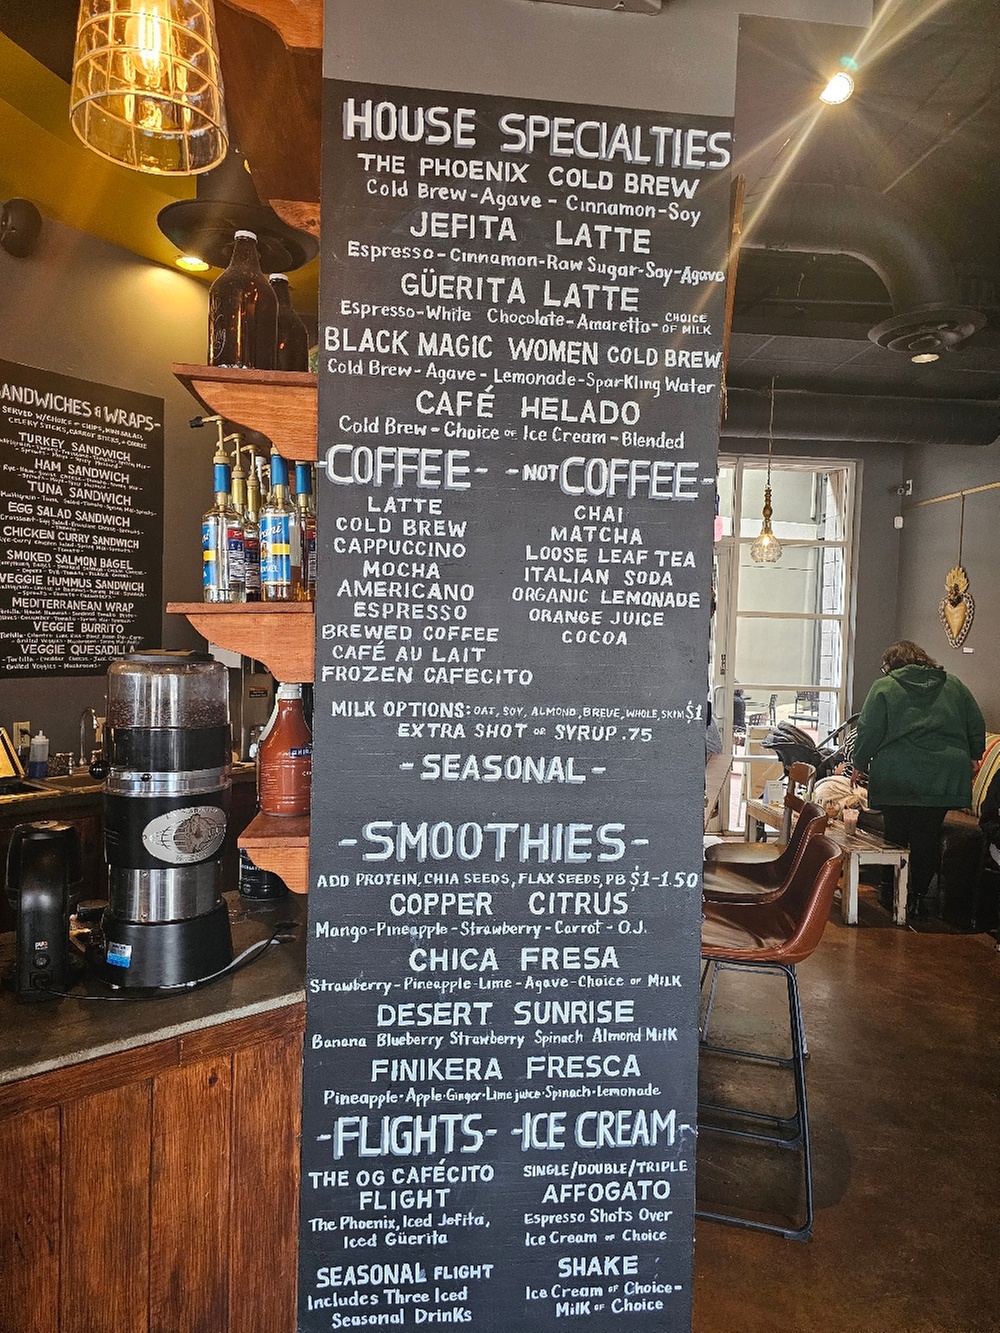 HOUSE SPECIALTIES
THE PHOENIX COLD BREW
Cold Brew-Agave - Cinnamon-Soy
JEFITA LATTE
Espresso-Cinnamon-Raw Sugar-Soy-Agave
GÜERITA LATTE
Espresso-White Chocolate-Amaretto- CHOICE OF MILK
BLACK MAGIC WOMEN COLD BREW
Cold Brew-Agave-Lemonade-Sparkling Water
CAFÉ HELADO
Cold Brew-Choice of Ice Cream-Blended
-COFFEE-
LATTE
COLD BREW
CAPPUCCINO
MOCHA
AMERICANO
ESPRESSO
BREWED COFFEE
CAFÉ AU LAIT
FROZEN CAFECITO
-NOT COFFEE-
CHAI
MATCHA
LOOSE LEAF TEA
ITALIAN SODA
ORGANIC LEMONADE
ORANGE JUICE
COCOA
MILK OPTIONS: OAT, SOY, ALMOND, BREVE, WHOLE, SKIM $1
EXTRA SHOT OR SYRUP .75
-SEASONAL-
-SMOOTHIES-
ADD PROTEIN, CHIA SEEDS, FLAX SEEDS, PB $1-1.50
COPPER CITRUS
Mango-Pineapple-Strawberry-Carrot-O.J.
CHICA FRESA
Strawberry-Pineapple-Lime-Agave-Choice of MILK
DESERT SUNRISE
Banana Blueberry Strawberry Spinach Almond Milk
FINIKERA FRESCA
Pineapple-Apple-Ginger-Lime juice-Spinach-Lemonade
-FLIGHTS-
THE OG CAFÉCITO
FLIGHT
The Phoenix, Iced Jefita,
Iced Güerita
SEASONAL FLIGHT
Includes Three Iced
Seasonal Drinks
-ICE CREAM-
SINGLE/DOUBLE/TRIPLE
AFFOGATO
Espresso Shots Over
Ice Cream of Choice
SHAKE
Ice Cream of Choice-
Milk of Choice
SANDWICHES & WRAPS-
SERVED W/CHOICE - CHIPS, MINI SALAD,
CELERY STICKS, CARROT STICKS, - COOKIE
TURKEY SANDWICH
HAM SANDWICH
TUNA SANDWICH
EGG SALAD SANDWICH
CHICKEN CURRY SANDWICH
SMOKED SALMON BAGEL
VEGGIE HUMMUS SANDWICH
MEDITERRANEAN WRAP
VEGGIE BURRITO
VEGGIE QUESADILLA
Grilled Veggies - Mushrooms